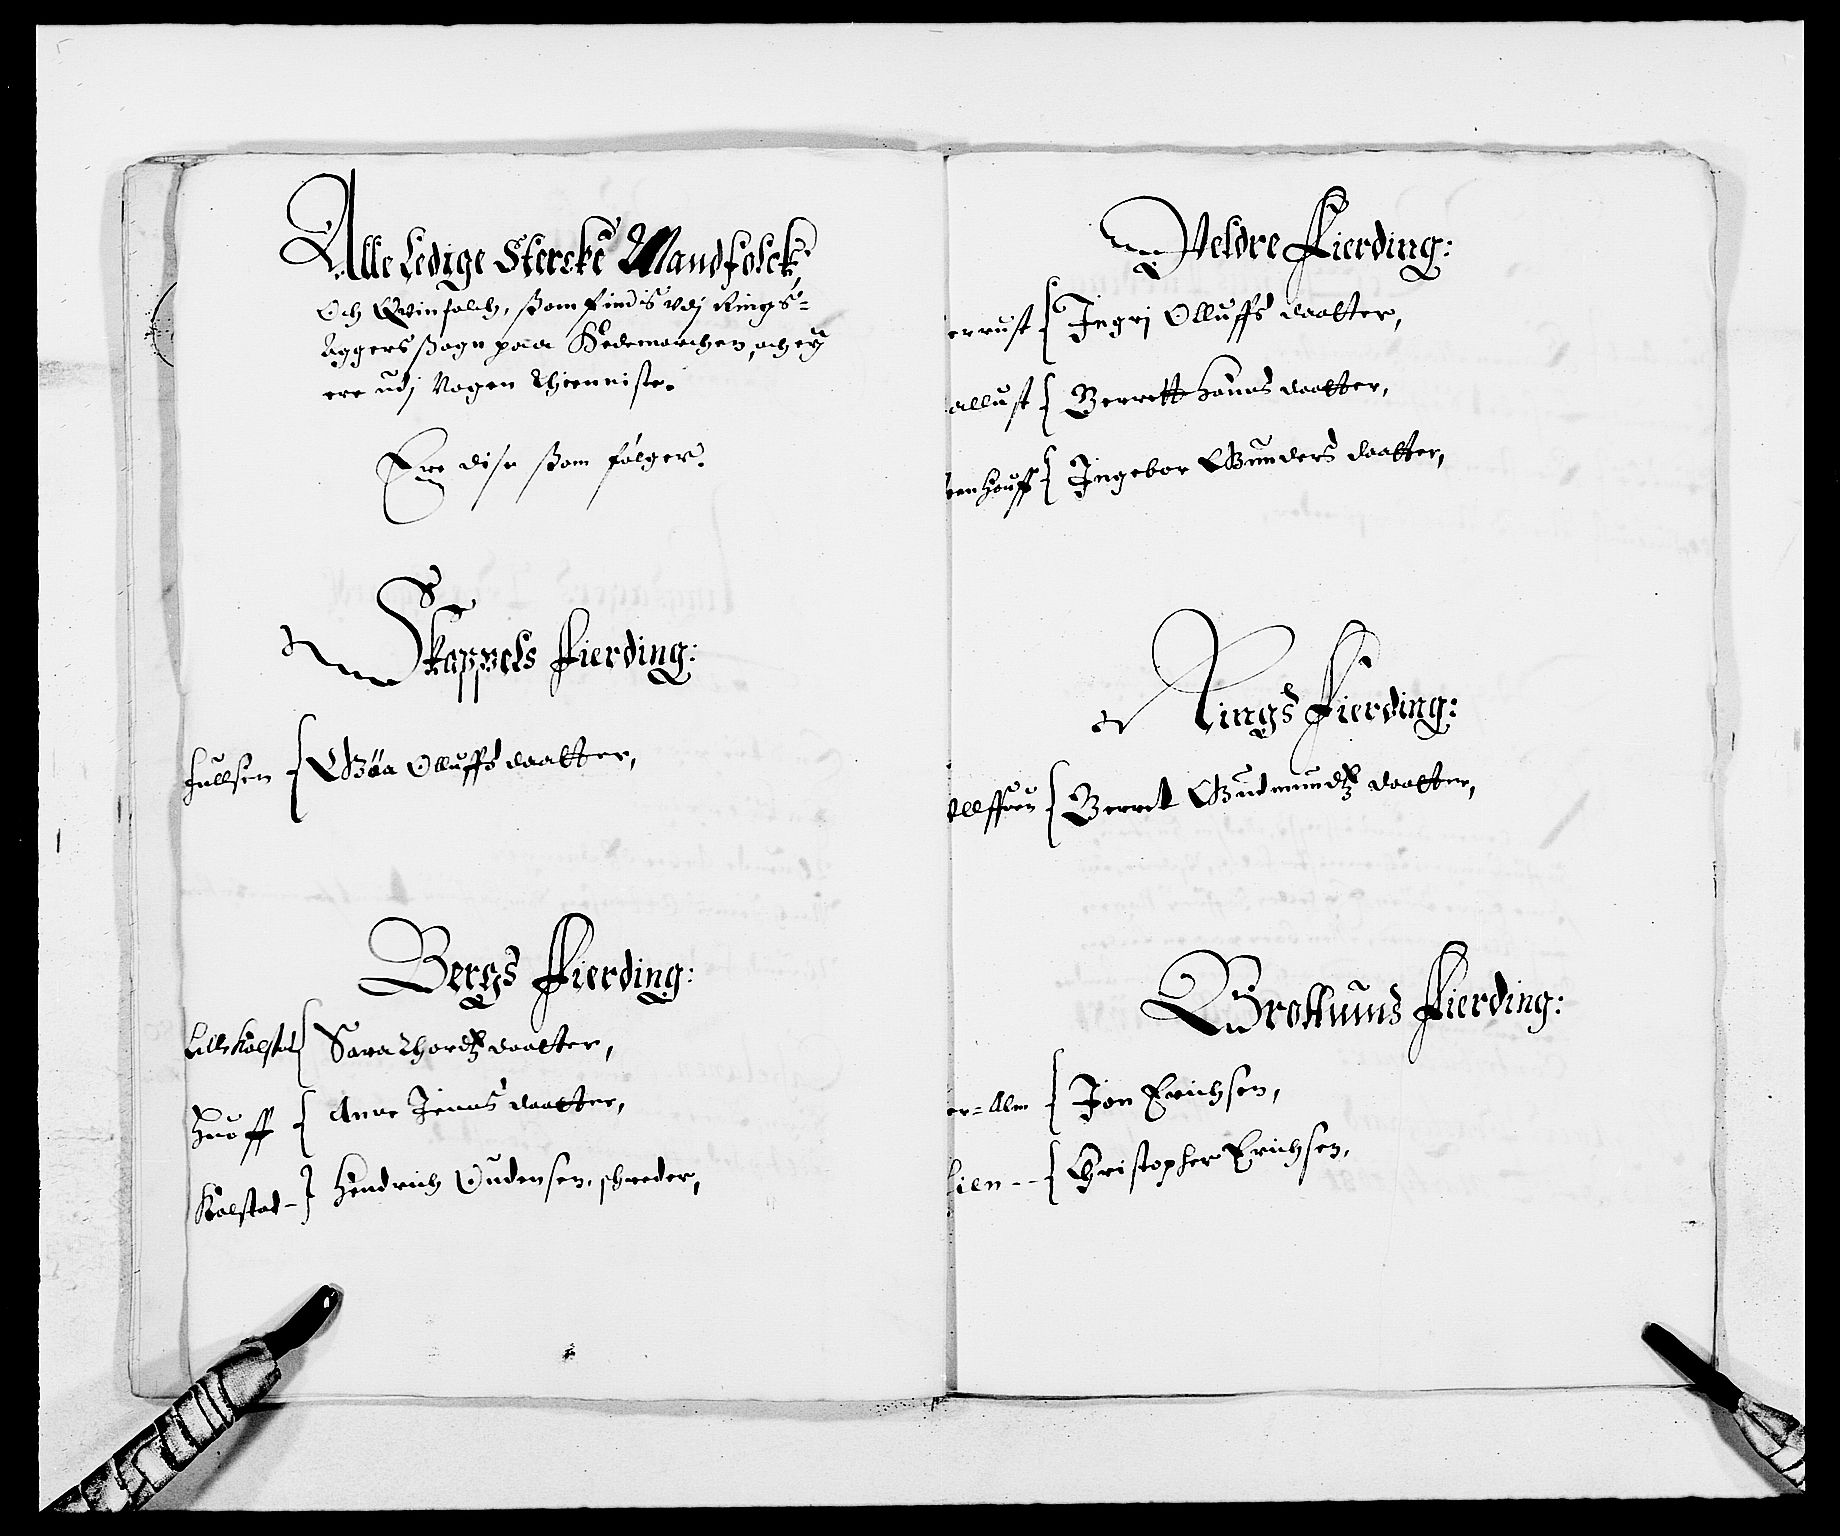 Alle Ledige Stercke Mandfolck
Och Qvinfolch, ßom findis udj Rings-
Aggers ßogn paa Hedemarchen, och ey
ere udj Nogen Thienniste.
Ere disse ßom følger.
Skappels Fierding:
Fullsen { Gøa Olluffs daatter,
Bergs Fierding:
Lille Kolstad { Sara Thordz daatter,
Huoff { Anne Jenns daatter,
Kolstad - } Hendrich Oudensen, schreder,
Veldre Fierding:
errust { Ingrj Olluffs daatter,
allust { Berrett Hanns daatter,
eenhouff { Ingebor Gunders daatter,
Rings Fierding:
{ Berret Gudmundtz daatter,
Brottums Fierding:
er-Alm { Jon Erichsen,
Lien -- { Christopher Erichsen,